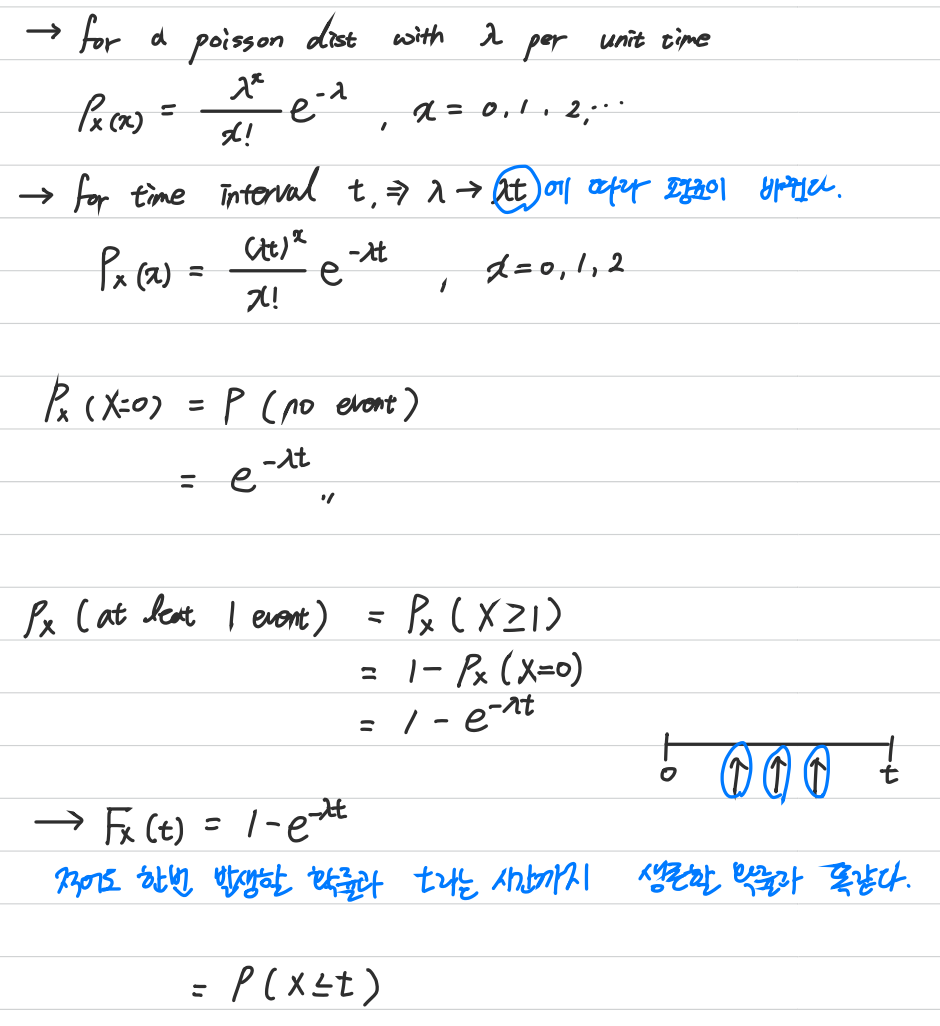 → for a poisson dist with λ per unit time
Px(x) = λ^x / x! e^-λ , x = 0, 1, 2, ...
→ for time interval t, ⇒ λ → λt 에 따라 표준이 바뀐다.
Px(x) = (λt)^x / x! e^-λt , x = 0, 1, 2
Px (X=0) = P (no event)
= e^-λt 〃
Px (at leat 1 event) = Px (X≥1)
= 1 - Px (X=0)
= 1 - e^-λt
0 ↑ ↑ ↑ t
→ Fx(t) = 1 - e^-λt
적어도 한번 발생할 확률과 t라는 시간까지 생존할 확률과 똑같다.
= P(X≤t)